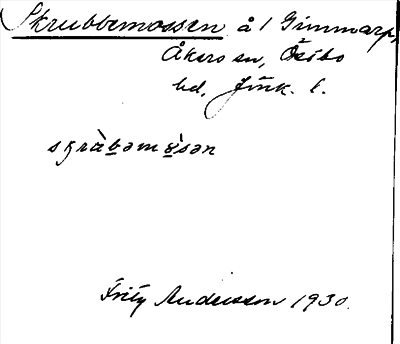 Skrubbemossen å 1 Gimmarp,
Åkers sn, Östbo
hd, Jönk. l.
skràbəmòsən
Fritz Andersson 1930.